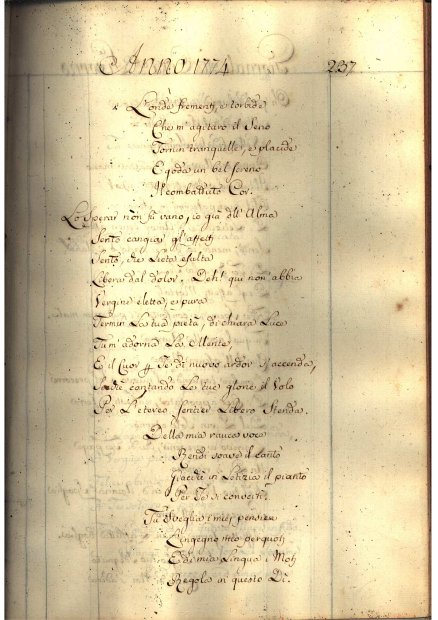 Anno 1774 237
L'onde frementi, e torbide
Che m'agitaro il Seno
Tornin tranquille, e placide
E goda un bel sereno
Il combattuto Cor.
Lo sperar non fù vano, io già dell'Alma
Sento cangiar gl'affetti
Sento, che Lieta esulta
Libera dal dolor, Deh! qui non abbia
Vergine eletta, e pura
Termin La tua pietà, di chiara Luce
Tu m'adorna La Mente,
E il Cuor Te di nuovo ardor Raccenda,
cantando Le tue glorie il Volo
Per L'etereo sentier Libero Stenda.
Della mia rauca voce
Rendi soave il canto
in Letizia il pianto
Per Te si converti.
Tu sveglia i miei pensieri
L'ingegno mio
E di mia Lingua i Moti
Regola in questo Dì.